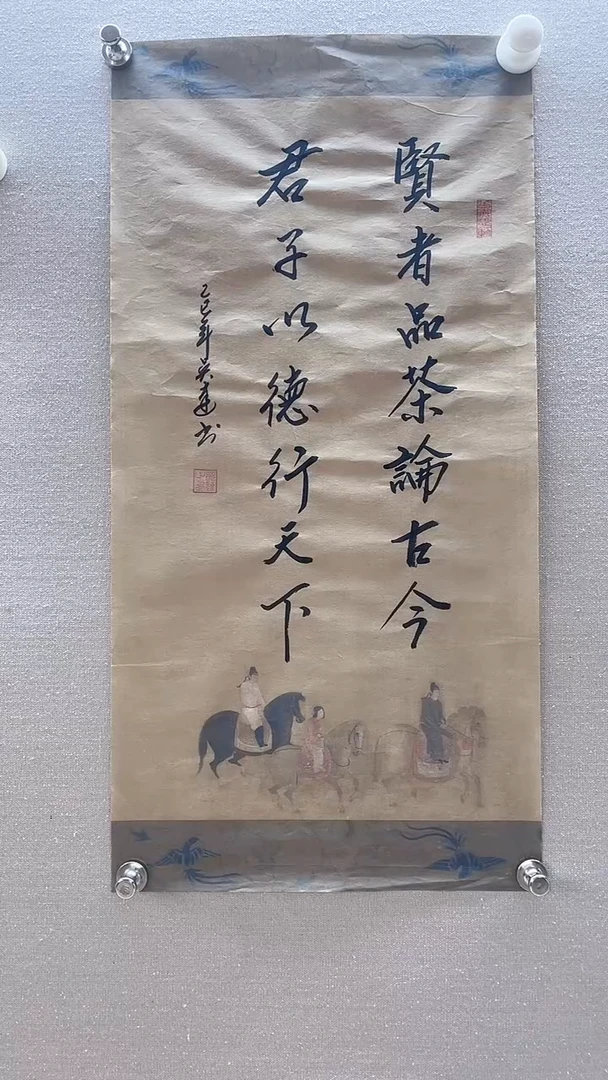 賢者品茶論古今
君子以德行天下
乙巳年吴建书